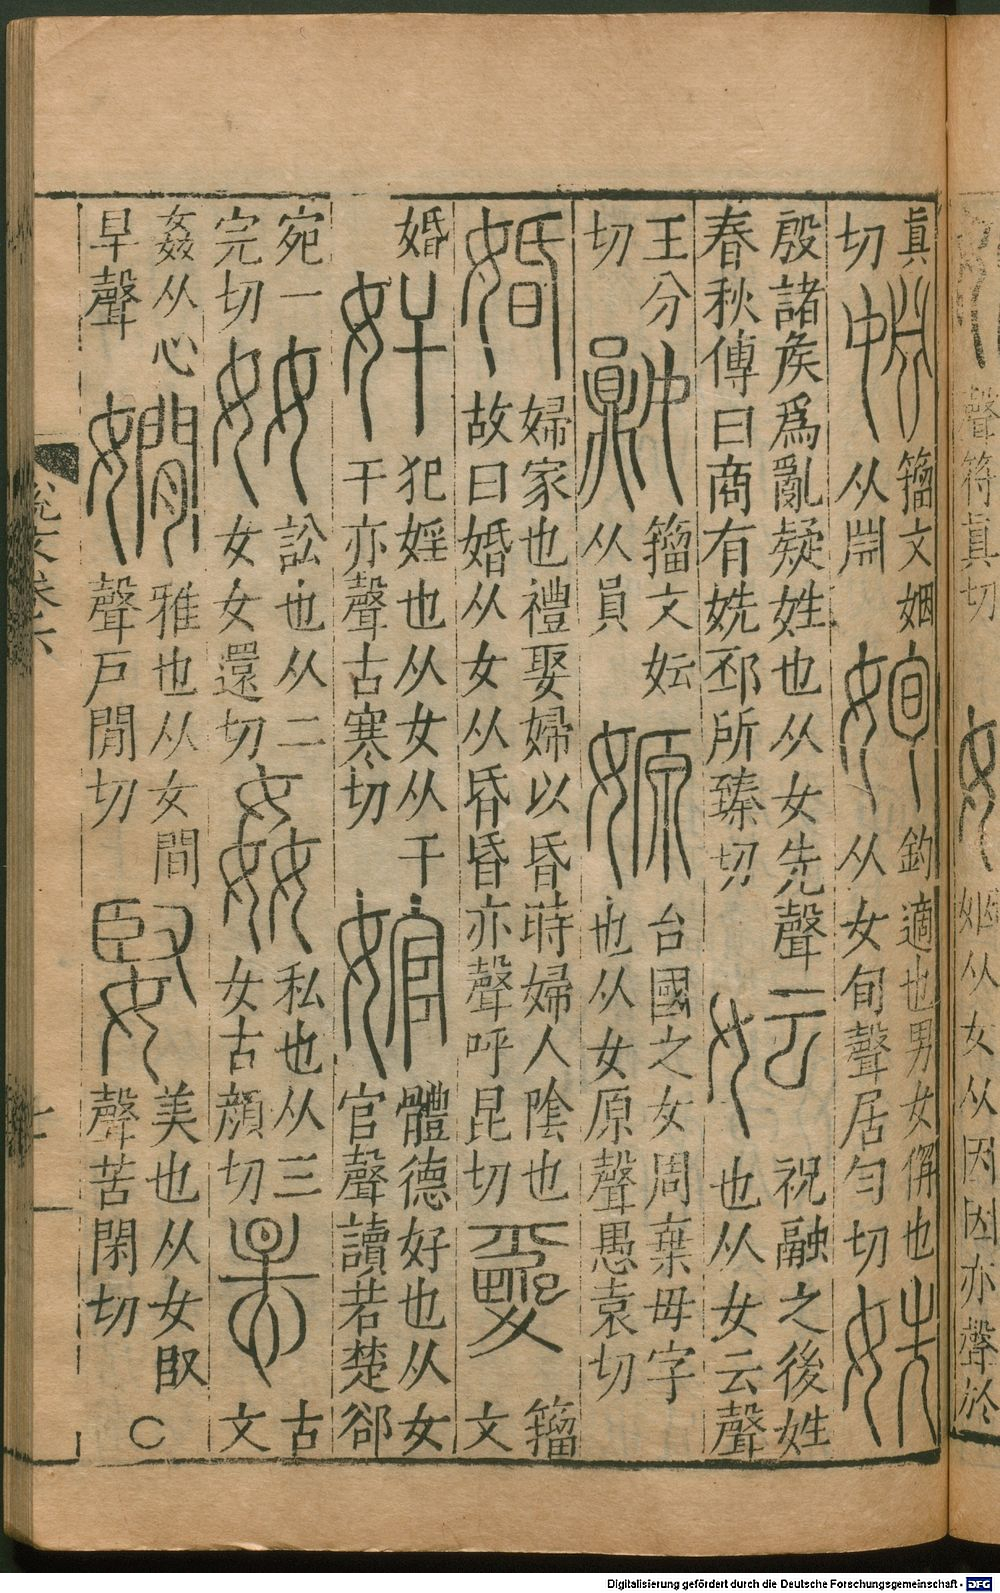 聲符眞切
姻从女从因因亦聲於
眞
切
婣
籀文姻
从𣶒
姰
鈞適也男女併也
从女旬聲居匀切
姺
殷諸矦爲亂疑姓也从女先聲
春秋傳曰商有姺邳所臻切
妘
祝融之後姓
也从女云聲
王分
切
籀文妘
从員
嫄
台國之女周棄母字
也从女原聲愚袁切
婚
婦家也禮娶婦以昏時婦人陰也
故曰婚从女从昏昏亦聲呼昆切
籀
文
婚
奸
犯婬也从女从干
干亦聲古寒切
婠
體德好也从女
官聲讀若楚郤
宛一
完切
奻
訟也从二
女女還切
姦
私也从三
女古顔切
古
文
姦从心
旱聲
嫺
雅也从女閒
聲戸閒切
婜
美也从女臤
聲苦閑切
說文卷六
七
Digitalisierung gefördert durch die Deutsche Forschungsgemeinschaft - DFG